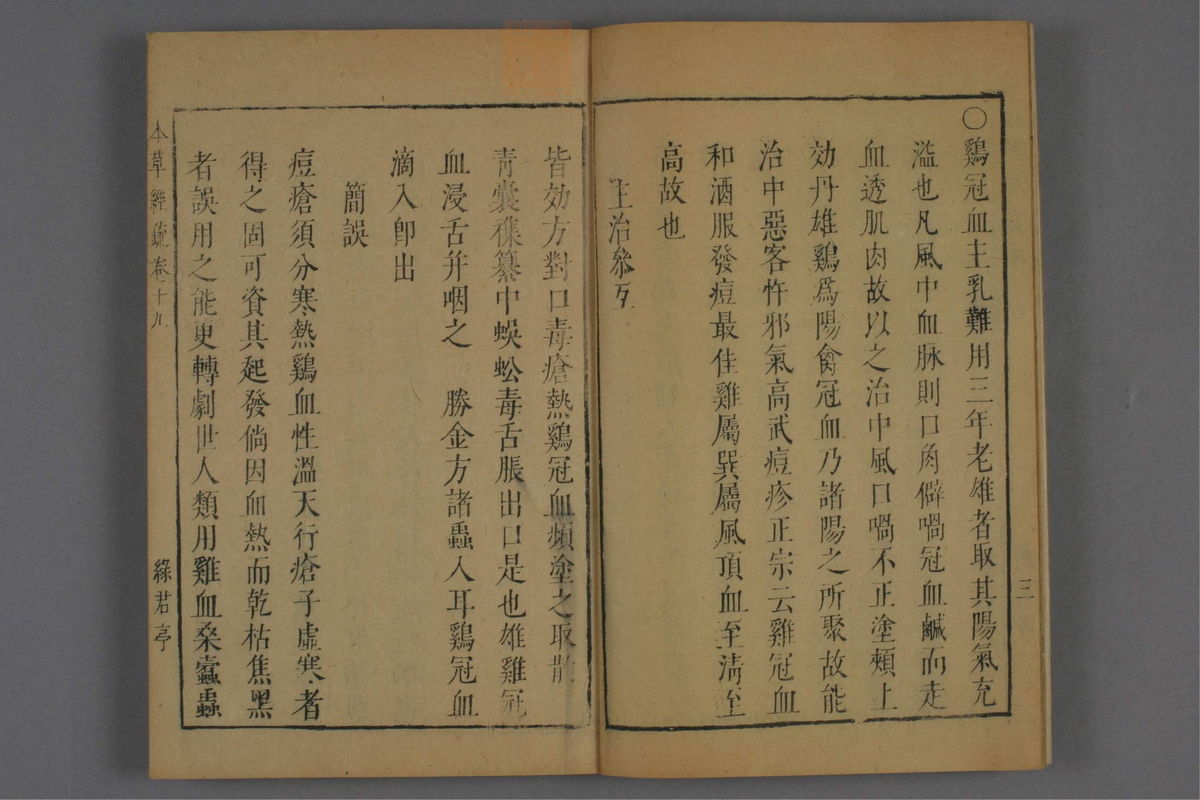 三
○鷄冠血主乳難用三年老雄者取其陽氣充
溢也凡風中血脉則口角僻喎冠血鹹而走
血透肌肉故以之治中風口喎不正塗頰上
効丹雄鷄爲陽禽冠血乃諸陽之所聚故能
治中惡客忤邪氣高武痘疹正宗云雞冠血
和酒服發痘最佳雞屬巽屬風頂血至清至
高故也
主治叅互
皆効方對口毒瘡熱鷄冠血頻塗之取散
青囊襍纂中蜈蚣毒舌脹出口是也雄雞冠
血浸舌并咽之 勝金方諸蟲入耳鷄冠血
滴入卽出
簡誤
痘瘡須分寒熱鷄血性溫天行瘡子虛寒者
得之固可資其起發倘因血熱而乾枯焦黑
者誤用之能更轉劇世人類用雞血桑蠹蟲
本草經疏卷十九
綠君亭